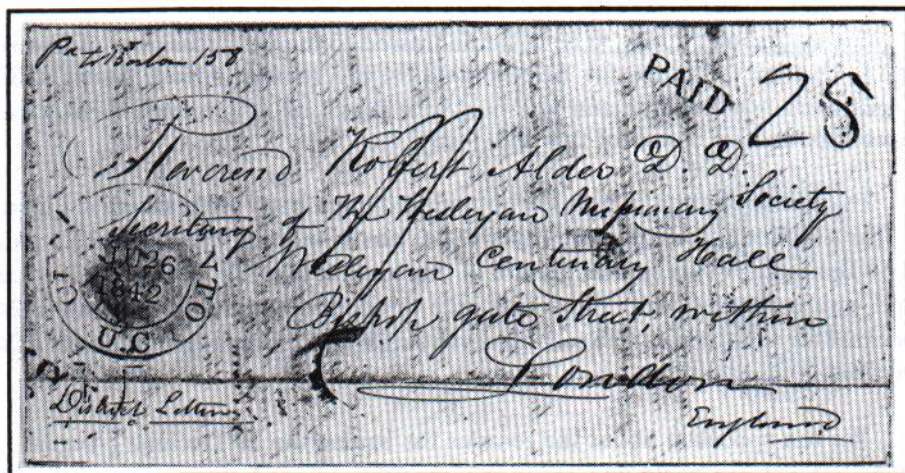 PAID 28
Reverend Robert Alder D. D.
Secretary of The Wesleyan Missionary Society
Wesleyan Centenary Hall
Bishop gate Street, within
London
England
26
1842
TO
U.C
District Letters